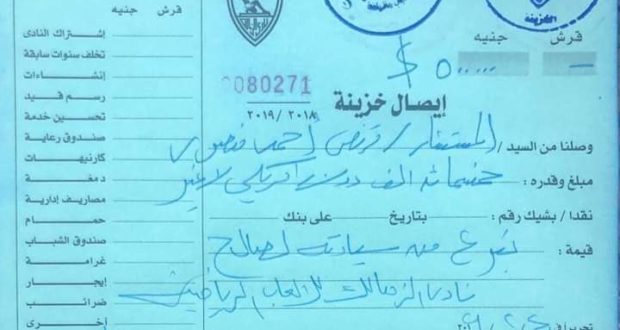 قرش جنيه
— 500.000 $
0080271
إيصال خزينة
٢٠١٨/٢٠١٩
وصلنا من السيد / المستشار / مرتضى أحمد منصور
مبلغ وقدره : خمسمائة ألف دولار أمريكي لا غير
نقدا / بشيك رقم : بتاريخ على بنك
قيمة : تبرع من سيادته لصالح
نادى الزمالك للألعاب الرياضية
تحريرا فى
قرش جنيه
إشتراك النادى
تخلف سنوات سابقة
إنشاءات
رسم قيد
تحسين خدمة
صندوق رعاية
كارنيهات
دمغة
مصاريف إدارية
حمام
صندوق الشباب
غرامة
إيجار
ضرائب
أخرى
الخزينة